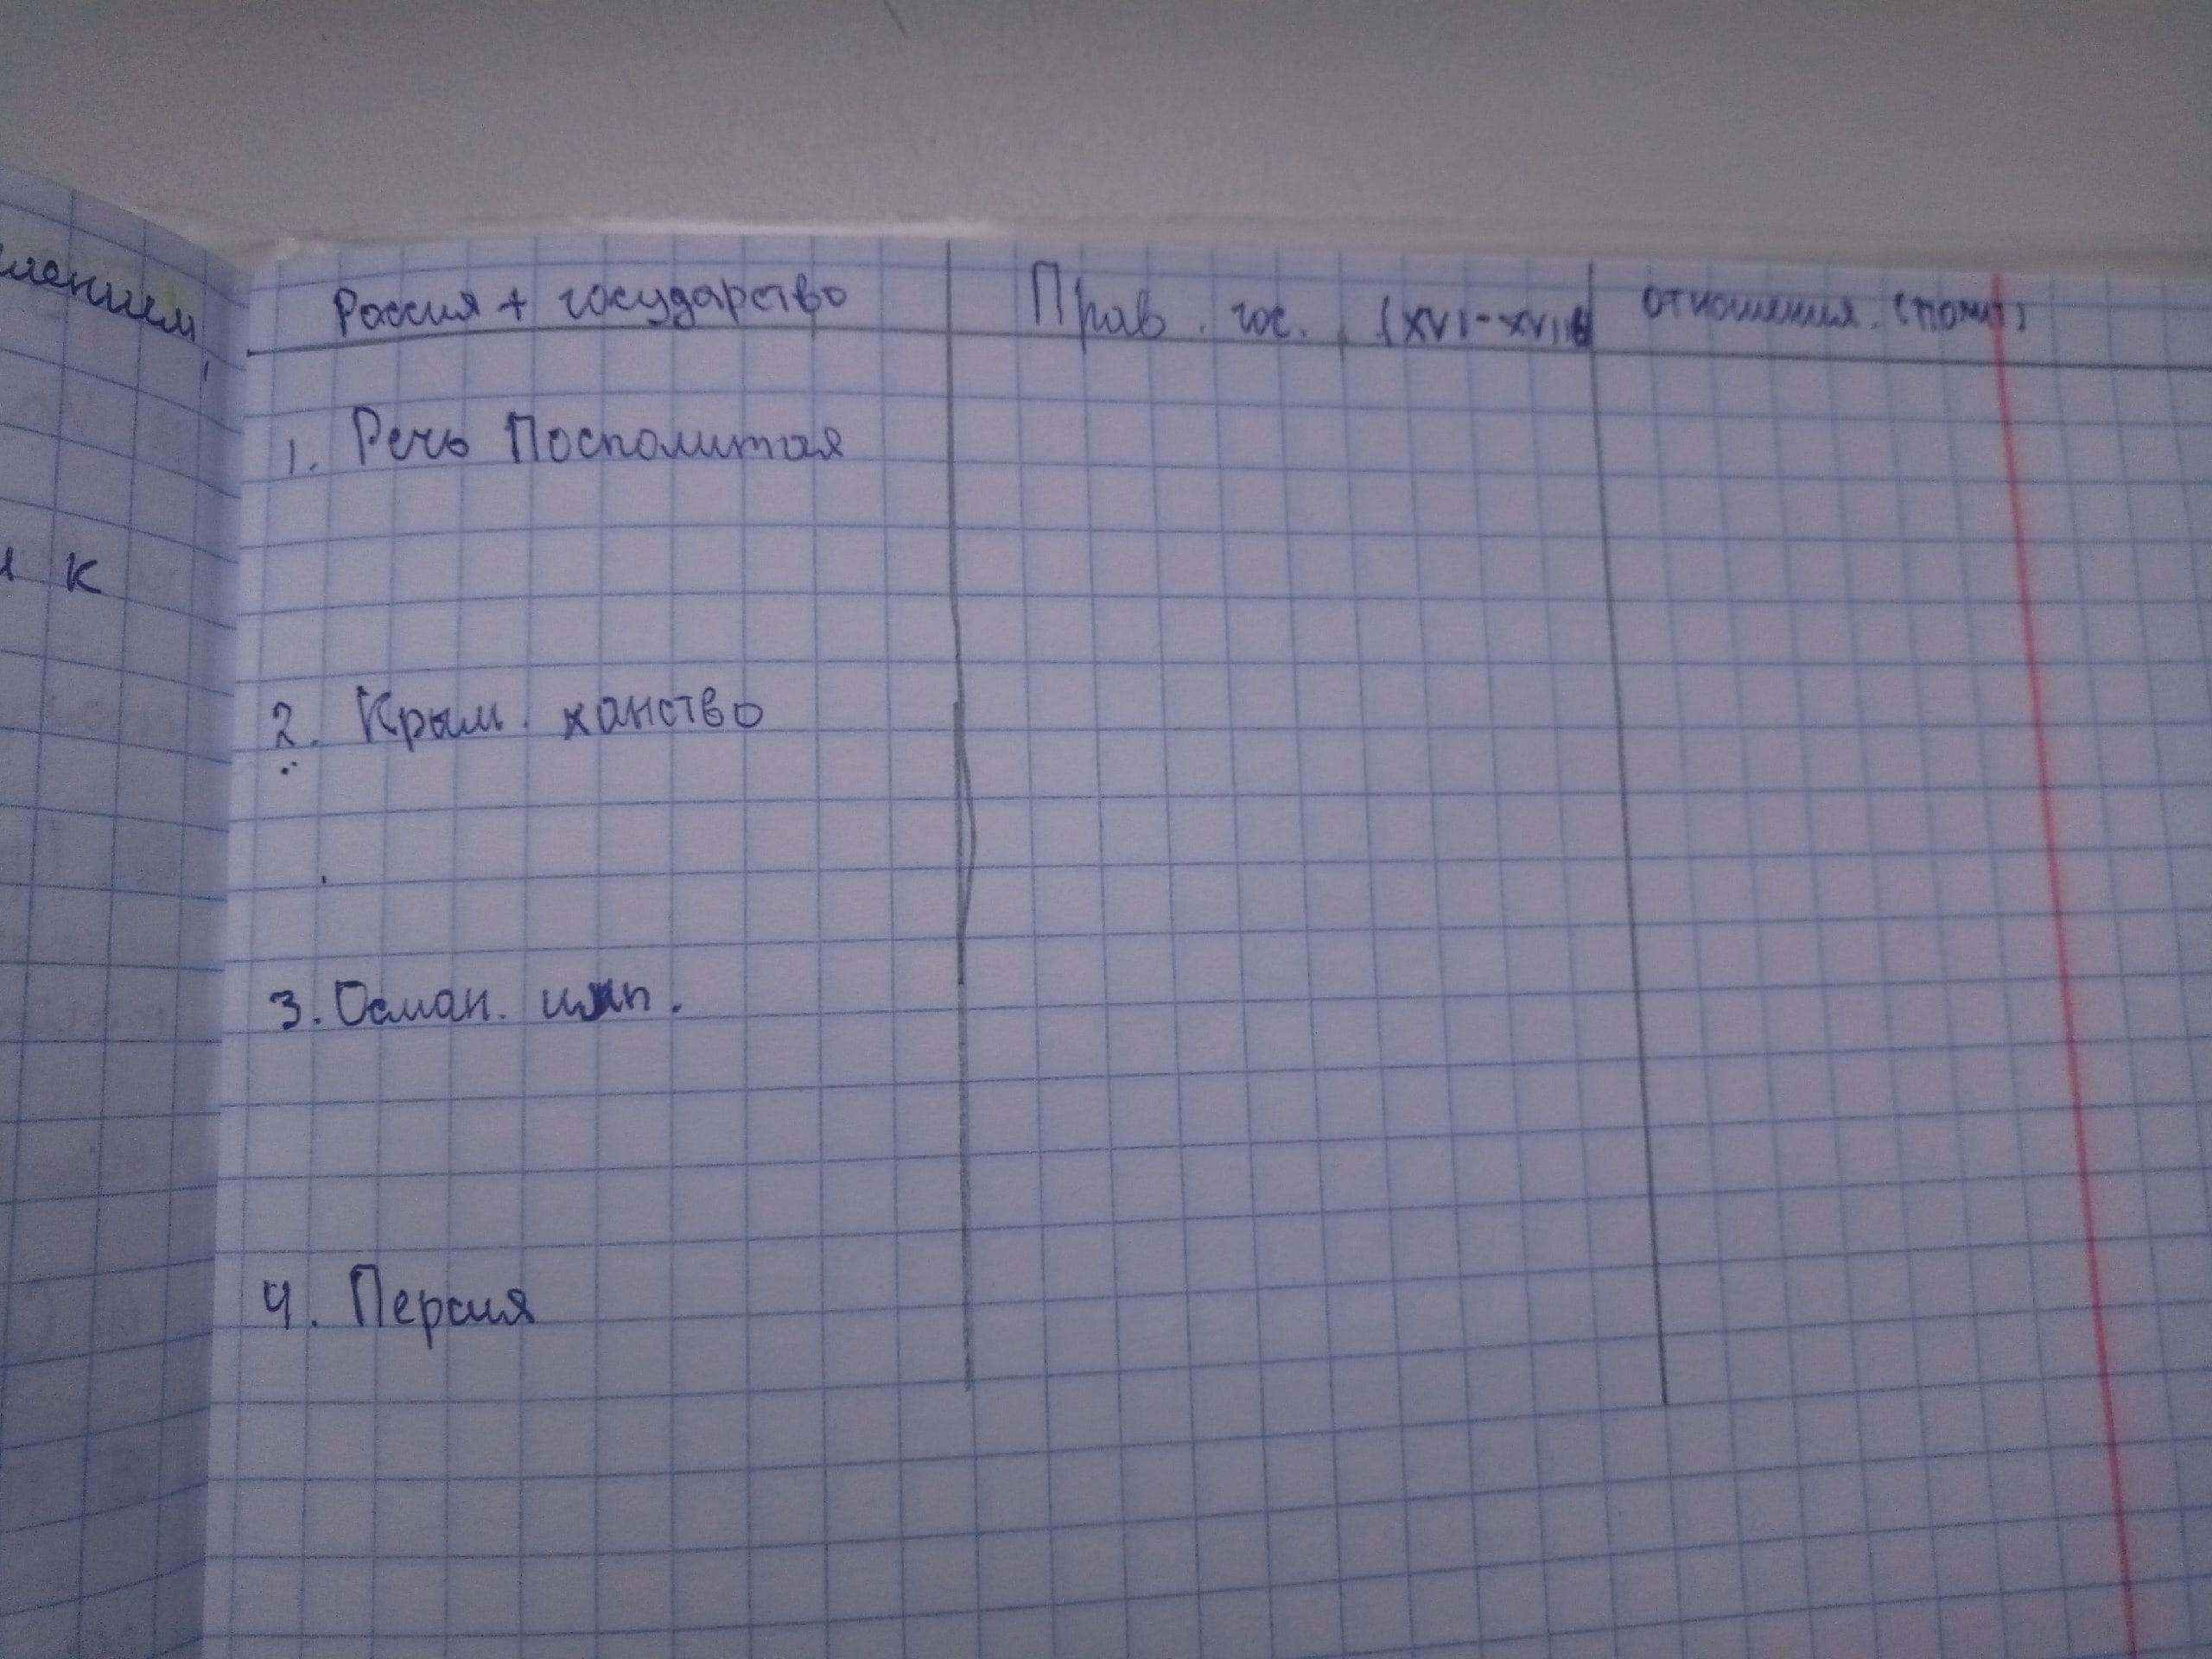 лением,
и к
Россия + государство
Прав. гос. (XVI-XVII в
отношения. (полит)
1. Речь Посполитая
2. Крым. ханство
3. Осман. имп.
4. Персия